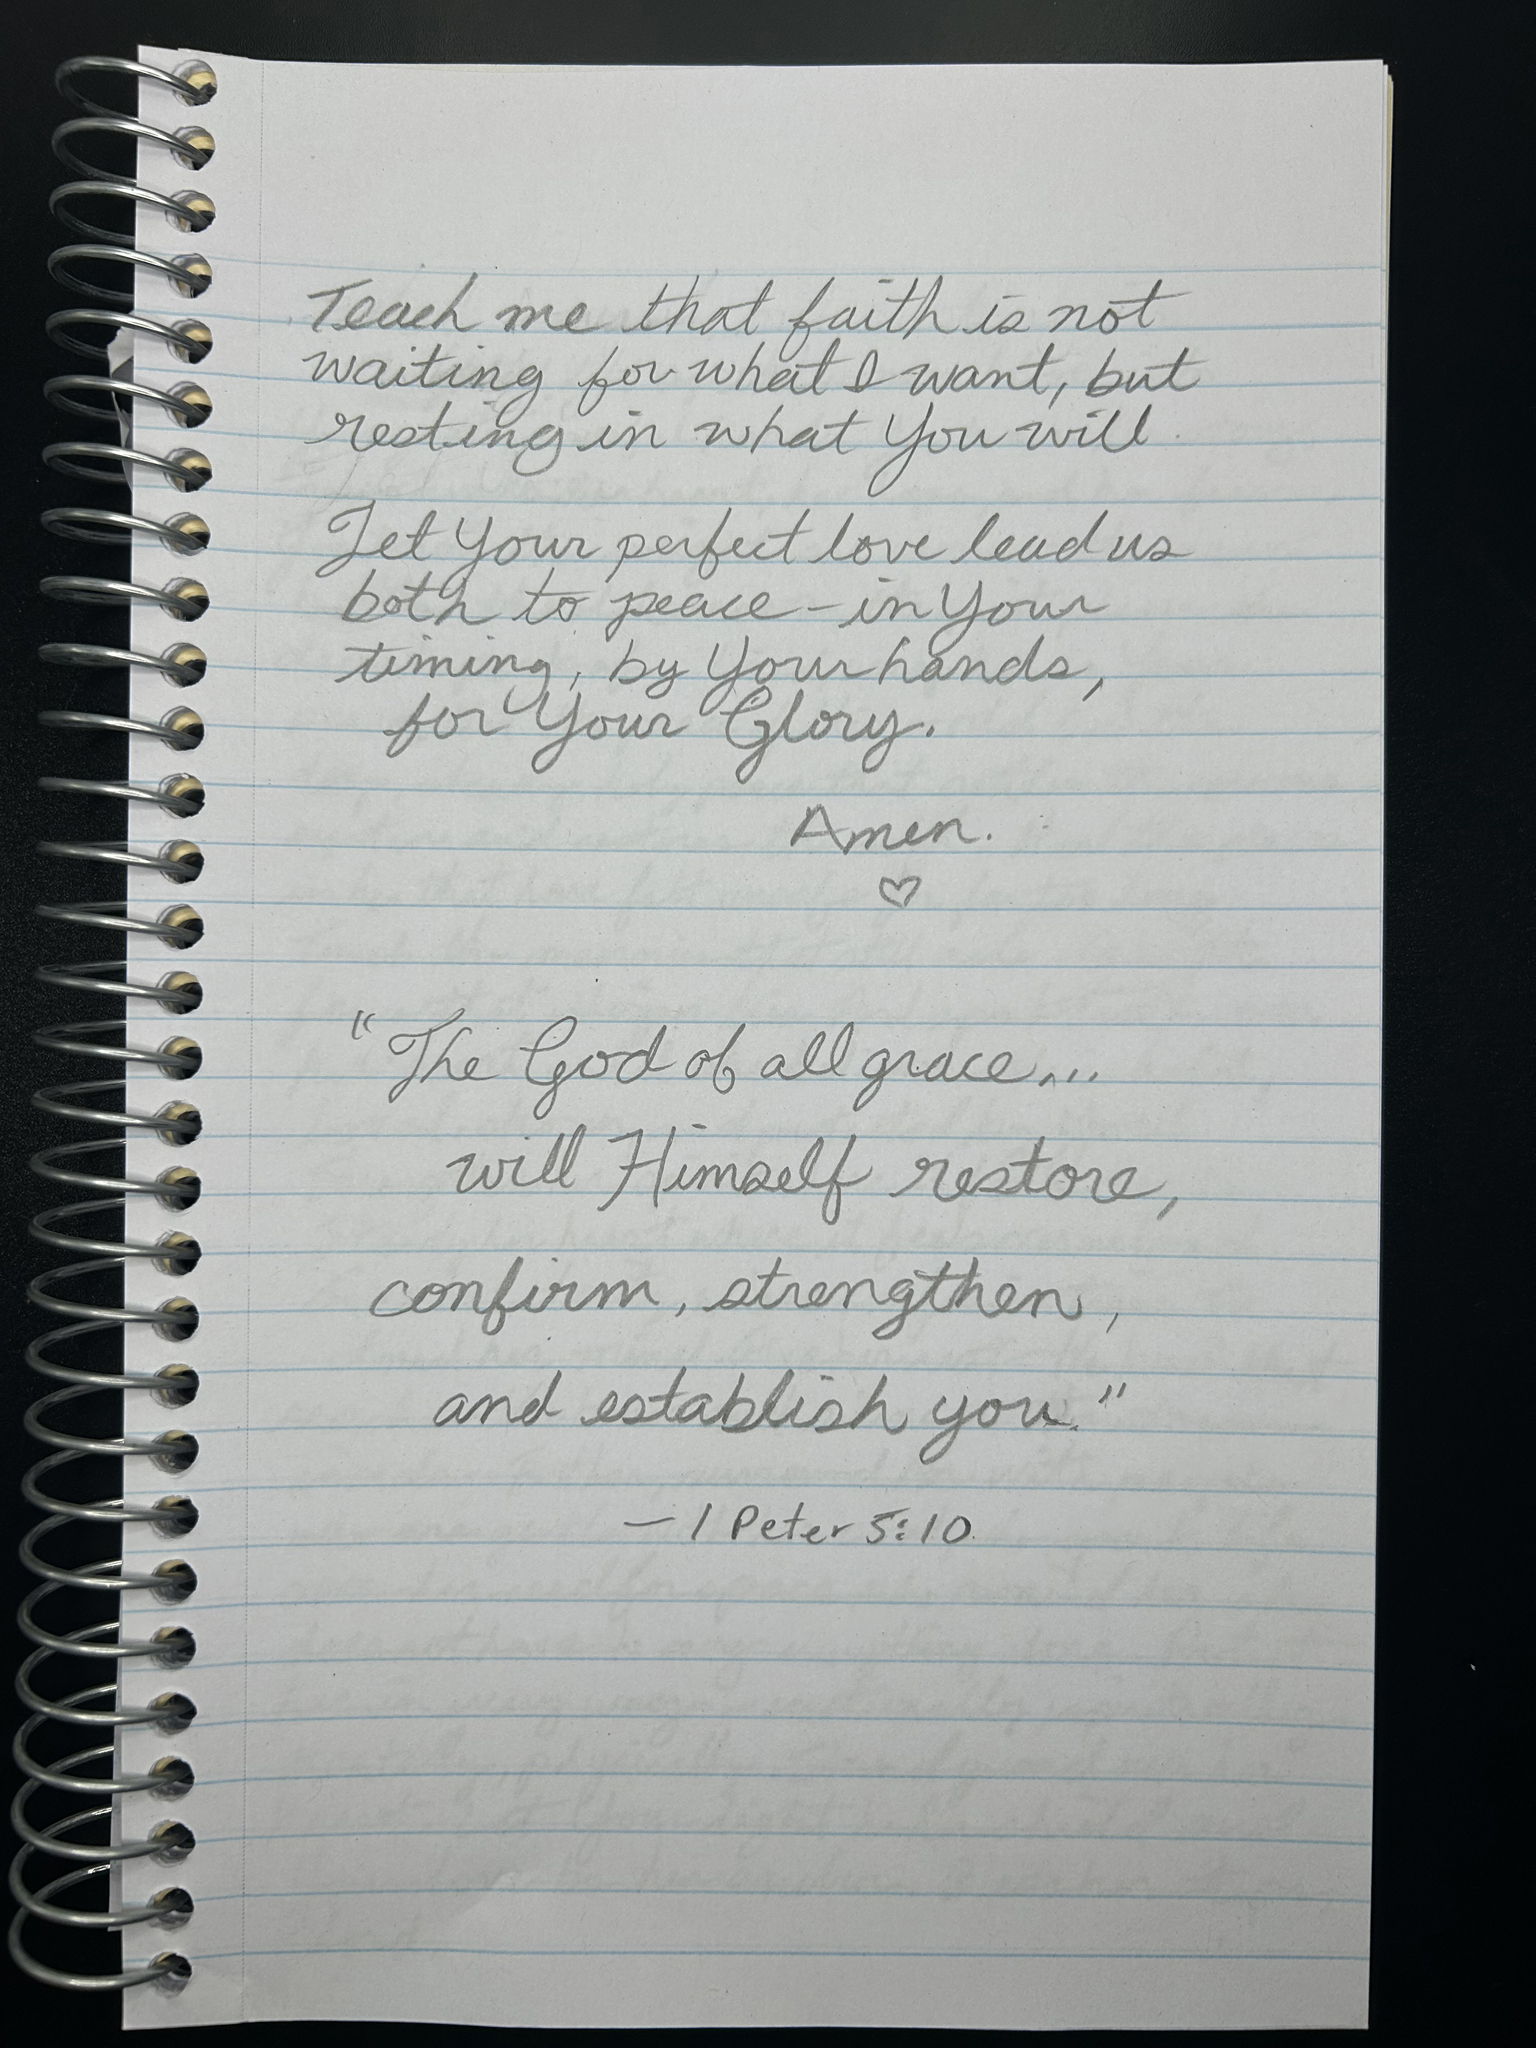 Teach me that faith is not
waiting for what I want, but
resting in what You will.
Let Your perfect love lead us
both to peace – in Your
timing, by Your hands,
for Your Glory.
Amen.
♡
"The God of all grace...
will Himself restore,
confirm, strengthen,
and establish you."
— 1 Peter 5:10